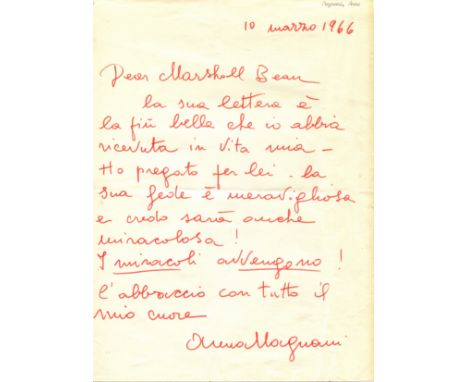 Magnani, Anna
10 marzo 1966
Dear Marshall Bean
la sua lettera è
la più bella che io abbia
ricevuta in vita mia –
Ho pregato per lei. la
sua fede è meravigliosa
e credo sarà anche
miracolosa!
I miracoli avvengono!
L'abbraccio con tutto il
mio cuore
Anna Magnani